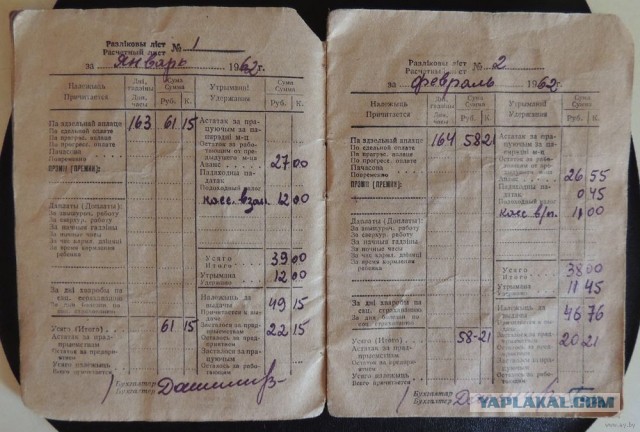 Разліковы ліст № 1
Расчетный лист
за Январь 1962 г.
Належыць
Причитается
Дні, гадзіны
Дни, часы
Сума
Сумма
Руб. К.
Утрыманні
Удержания
Сума
Сумма
Руб. К.
Па здзельнай аплаце 163 61 15
По сдельной оплате
Па прагрэс. аплаце
По прогресс. оплате
Пачасова
Повременно
ПРЭМІІ [ПРЕМИИ]:
Астатак за працуючым за папярэдні м-ц
Остаток за работающим от предыдущего м-ца
Аванс 27 00
Падаходны падатак
Подоходный налог
касс. взам. 12 00
Даплаты (Доплаты):
За звышурач. работу
За сверхур. работу
За начныя гадзіны
За ночные часы
За час кармл. дзіцяці
За время кормления ребенка
Усяго
Итого 39 00
Утрымана
Удержано 12 00
За дні хваробы па сац. страхаванню
За дни болезни по соц. страхованию
Належыць да выдачы 49 15
Причитается к выдаче
Усяго (Итого) 61 15
Засталося за прадпрыемствам 22 15
Осталось за предприятием
Астатак за прадпрыемствам
Остаток за предприятием
Засталося за працуючым
Осталось за работающим
Усяго належыць
Всего причитается
Бухгалтар
Бухгалтер
Разліковы ліст № 2
Расчетный лист
за Февраль 1962 г.
Належыць
Причитается
Дні, гадзіны
Дни, часы
Сума
Сумма
Руб. К.
Утрыманні
Удержания
Сума
Сумма
Руб. К.
Па здзельнай аплаце 164 58 21
По сдельной оплате
Па прагрэс. аплаце
По прогресс. оплате
Пачасова
Повременно
ПРЭМІІ [ПРЕМИИ]:
Астатак за працуючым за папярэдні м-ц
Остаток за работающим от предыдущего м-ца
Аванс 26 55
Падаходны падатак 0 45
Подоходный налог
касс. в/п. 11 00
Даплаты (Доплаты):
За звышурач. работу
За сверхур. работу
За начныя гадзіны
За ночные часы
За час кармл. дзіцяці
За время кормления ребенка
Усяго
Итого 38 00
Утрымана
Удержано 11 45
За дні хваробы па сац. страхаванню
За дни болезни по соц. страхованию
Належыць да выдачы 46 76
Причитается к выдаче
Усяго (Итого) 58-21
Засталося за прадпрыемствам 20 21
Осталось за предприятием
Астатак за прадпрыемствам
Остаток за предприятием
Засталося за працуючым
Осталось за работающим
Усяго належыць
Всего причитается
Бухгалтар
Бухгалтер
YAPLAKAL.COM
www.ay.by